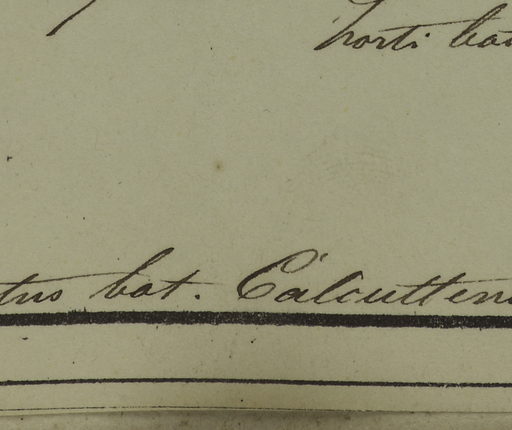 horti bot
tus bot. Calcutten